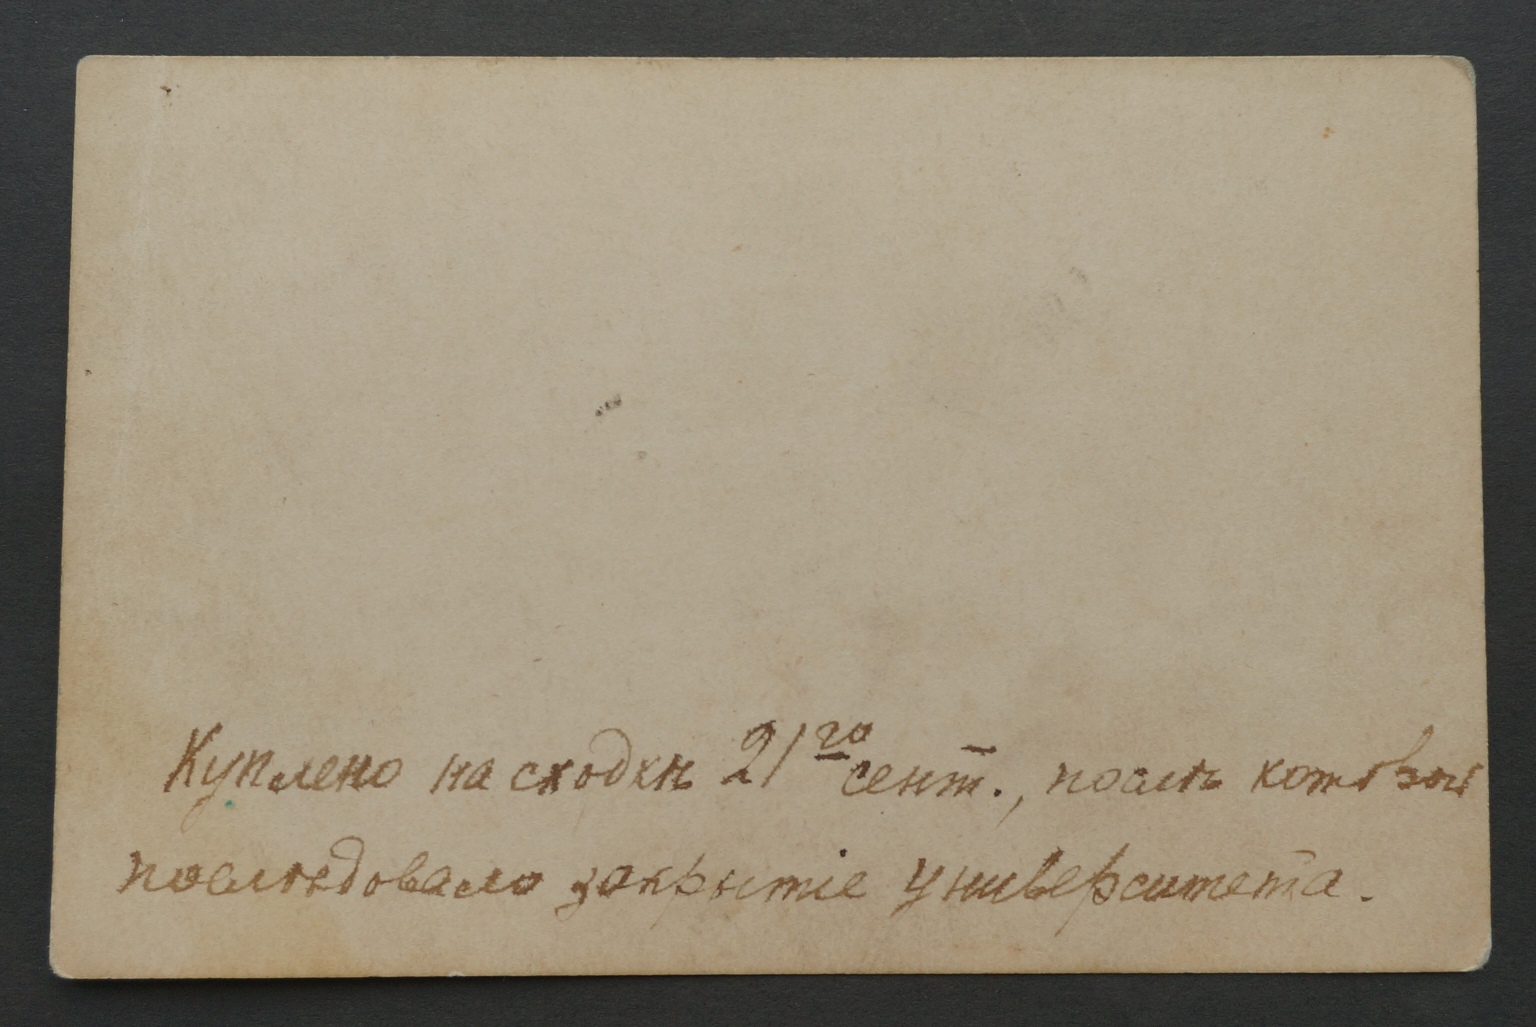 Куплено на сходкѣ 21го сент., послѣ которой
послѣдовало закрытіе университета.